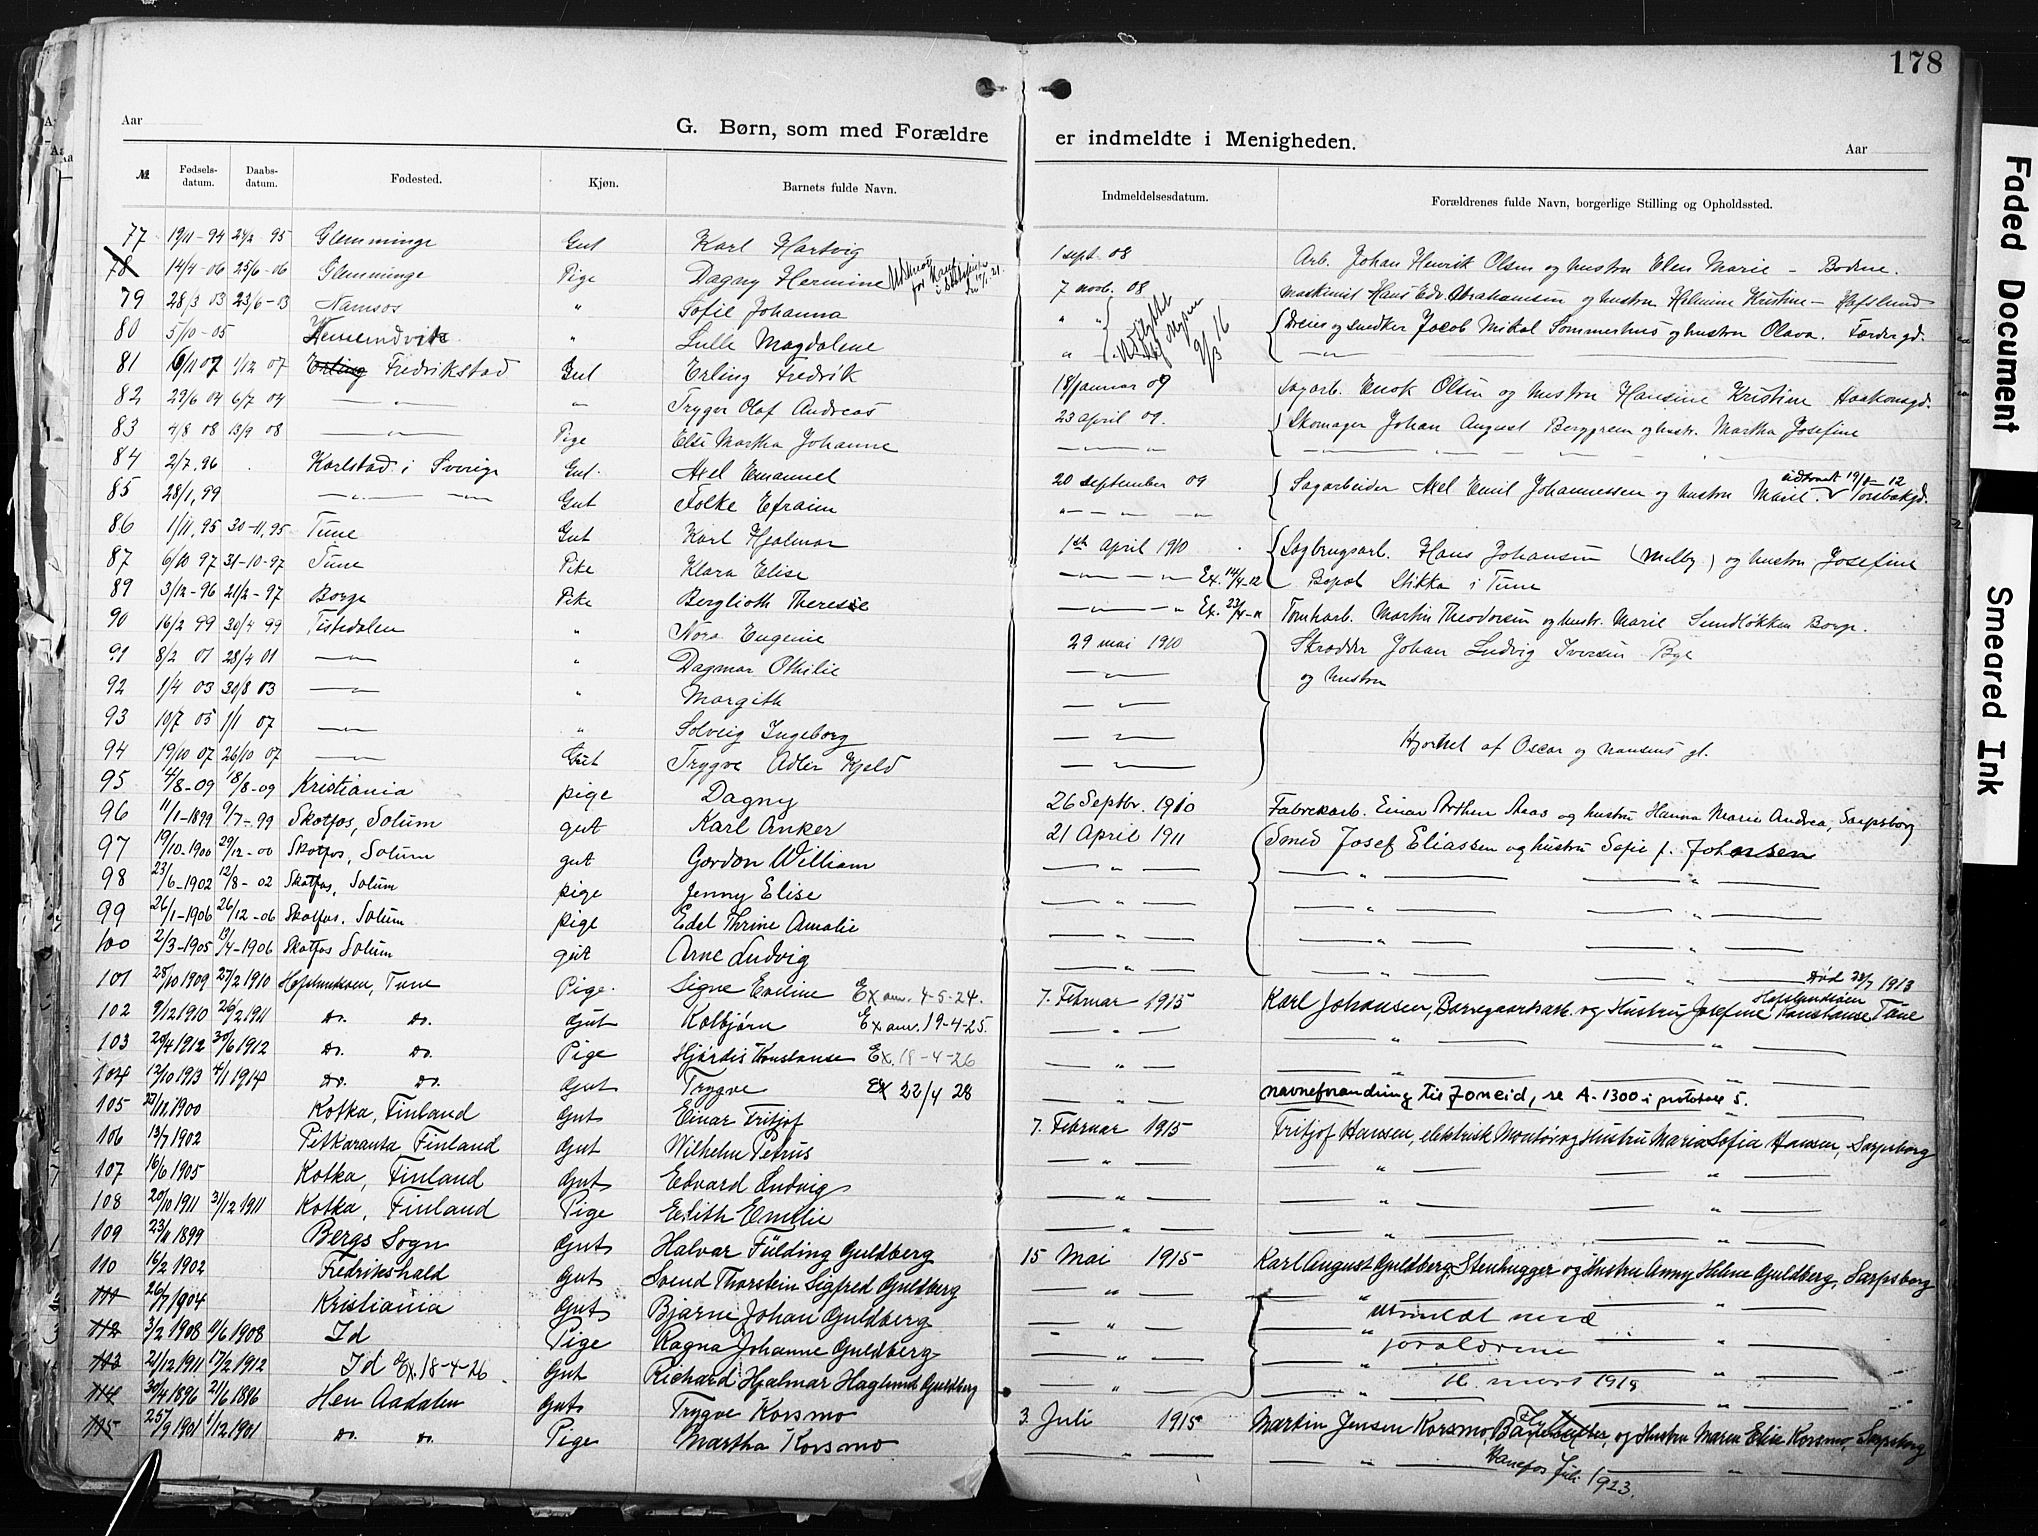 178
Aar
G. Børn, som med Forældre er indmeldte i Menigheden.
Aar
№ Fødsels-datum. Daabs-datum. Fødested. Kjøn. Barnets fulde Navn. Indmeldelsesdatum. Forældrenes fulde Navn, borgerlige Stilling og Opholdssted.
77 19/11-94 24/2 95 Glemminge Gut Karl Hartvig 1 sept. 08 Arb. Johan Henrik Olsen og hustru Elen Marie - Bodene.
78 14/4-06 25/6-06 Glemminge Pige Dagny Hermine 7 novb. 08 Maskinist Hans Edv. Abrahamsen og hustru Helmine Kristine - Hafslund
79 28/3 03 23/6-03 Namsos " Sofie Johanna " " Dreier og snedker Jacob Mikal Sommerhus og hustru Olava. Færdergd.
80 5/10-05 " Lulle Magdalene " 9/3 16 — " —
81 6/11 07 1/12 07 Erling Fredrikstad Gut Erling Fredrik 18 januar 09 Sagarb. Enok Olsen og hustru Hansine Kristine Haakonsgd.
82 29/6 04 6/7 04 — " — " Trygve Olaf Andreas 23 april 09. Skomager Johan August Berggreen og hustr. Martha Josefine
83 4/8 08 13/9 08 — " — Pige Else Martha Johanne
84 2/7.96 Karlstad i Sverige Gut. Axel Emanuel 20 september 09 Sagarbeider Axel Emil Johannessen og hustru Marie. Torsbækgd. udtraadt 19/8-12
85 28/1,99 — " — — " — Gut Folke Efraim " — " — —
86 1/11,95 30-11,95 Tune Gut Karl Hjalmar 1st April 1910 Sagbrugsarb. Hans Johansen (Melby) og hustru Josefine
87 6/10 97 31-10-97 Tune Pike Klara Elise — " — — " Ex. 14/4-12 Bopæl Stikka i Tune
89 3/12-96 21/2-97 Borge Pike Berglioth Therese — " — — " Ex. 23/4-11 Tomtarb. Martin Theodorsen og hustr. Marie Sundløkken Borge.
90 16/2 99 30/4 99 Tistedalen " Nora Eugenie 29 mai 1910 Skrædder Johan Ludvig Iversen Bye
91 8/2 01 28/4 01 — " — " Dagmar Othilie — " — og hustru
92 1/4 03 30/8 03 — " — " Margith — " —
93 10/7 05 1/1 07 — " — " Solveig Ingeborg — " — Hjørnet af Oscar og Nansens gt.
94 19/10 07 26/10 07 — " — Gut Trygve Adler Kjeld — " —
95 4/8-09 18/8-09 Kristiania pige Dagny 26 Septbr. 1910 Fabrikarb. Einar Arthur Aaas og hustru Hanna Marie Andrea, Sarpsborg
96 11/1-1899 9/7-99 Skotfos, Solum gut Karl Anker 21 April 1911 Smed Josef Eliassen og hustru Sofie f. Johansen
97 19/10-1900 29/12-00 Skotfos, Solum gut Gordon William — " — — " —
98 23/6-1902 12/8-02 Skotfos, Solum pige Jenny Elise — " — — " —
99 26/1-1906 26/12-06 Skotfos. Solum pige Edel Thrine Amalie — " — — " —
100 2/3-1905 13/4-1906 Skotfos Solum gut Arne Ludvig — " — — " — Død 28/7 1913
101 28/10 1909 27/2 1910 Hafslundsøen, Tune Pige. Signe Eveline Ex am. 4-5-24. 7. Februar 1915 Karl Johansen, Borregaardsarb. og Hustru Josefine Konstanse Hafslundsøen Tune
102 9/12 1910 26/2 1911 Do. Do. Gut Kolbjørn Ex am. 19-4-25. — " — — " —
103 20/4 1912 30/6 1912 Do. Do. Pige Hjørdis Konstanse Ex. 18-4-26 — " — — " —
104 12/10 1913 4/1 1914 Do. Do. Gut Trygve Ex 22/4 28 — " — navneforandring til Joneid, se A-1300 i protokoll 5.
105 27/11 1900 Kotka, Finland Gut Einar Fritjof 7. Februar 1915 Fritjof Hansen, elektrisk Montør og Hustru Maria Sofia Hansen, Sarpsborg
106 13/7 1902 Petkaranta, Finland Gut Wilhelm Petrus — " — — " —
107 16/6 1905 Kotka, Finland Gut Edvard Ludvig — " — — " —
108 20/10 1911 31/12 1911 Kotka, Finland Pige Edith Emilie — " — — " —
109 23/11 1899 Bergs Sogn Gut Halvar Fülding Guldberg 15 Mai 1915 Karl August Guldberg, Stenhugger og Hustru Anny Helene Guldberg, Sarpsborg
110 16/2 1902 Fredrikshald Gut Svend Thorstein Sigfred Guldberg — " — — " —
111 26/7 1904 Kristiania Gut Bjarne Johan Guldberg — " — utmeldt med
112 3/2 1908 11/6 1908 Id Pige Ragna Johanne Guldberg — " — forældrene
113 21/12 1911 17/2 1912 Id Ex. 18-4-26. Gut Richard Hjalmar Haglund Guldberg — " — mars 1918
114 30/4 1896 21/6 1896 Hen Aadalen Gut Trygve Korsmo 3. Juli 1915 Martin Jensen Korsmo, og Hustru Maren Elise Korsmo, Sarpsborg
115 25/9 1901 1/12 1901 Do. Do. Pige Martha Korsmo — " — Hanefos Juli 1923.
Faded Document
Smeared Ink